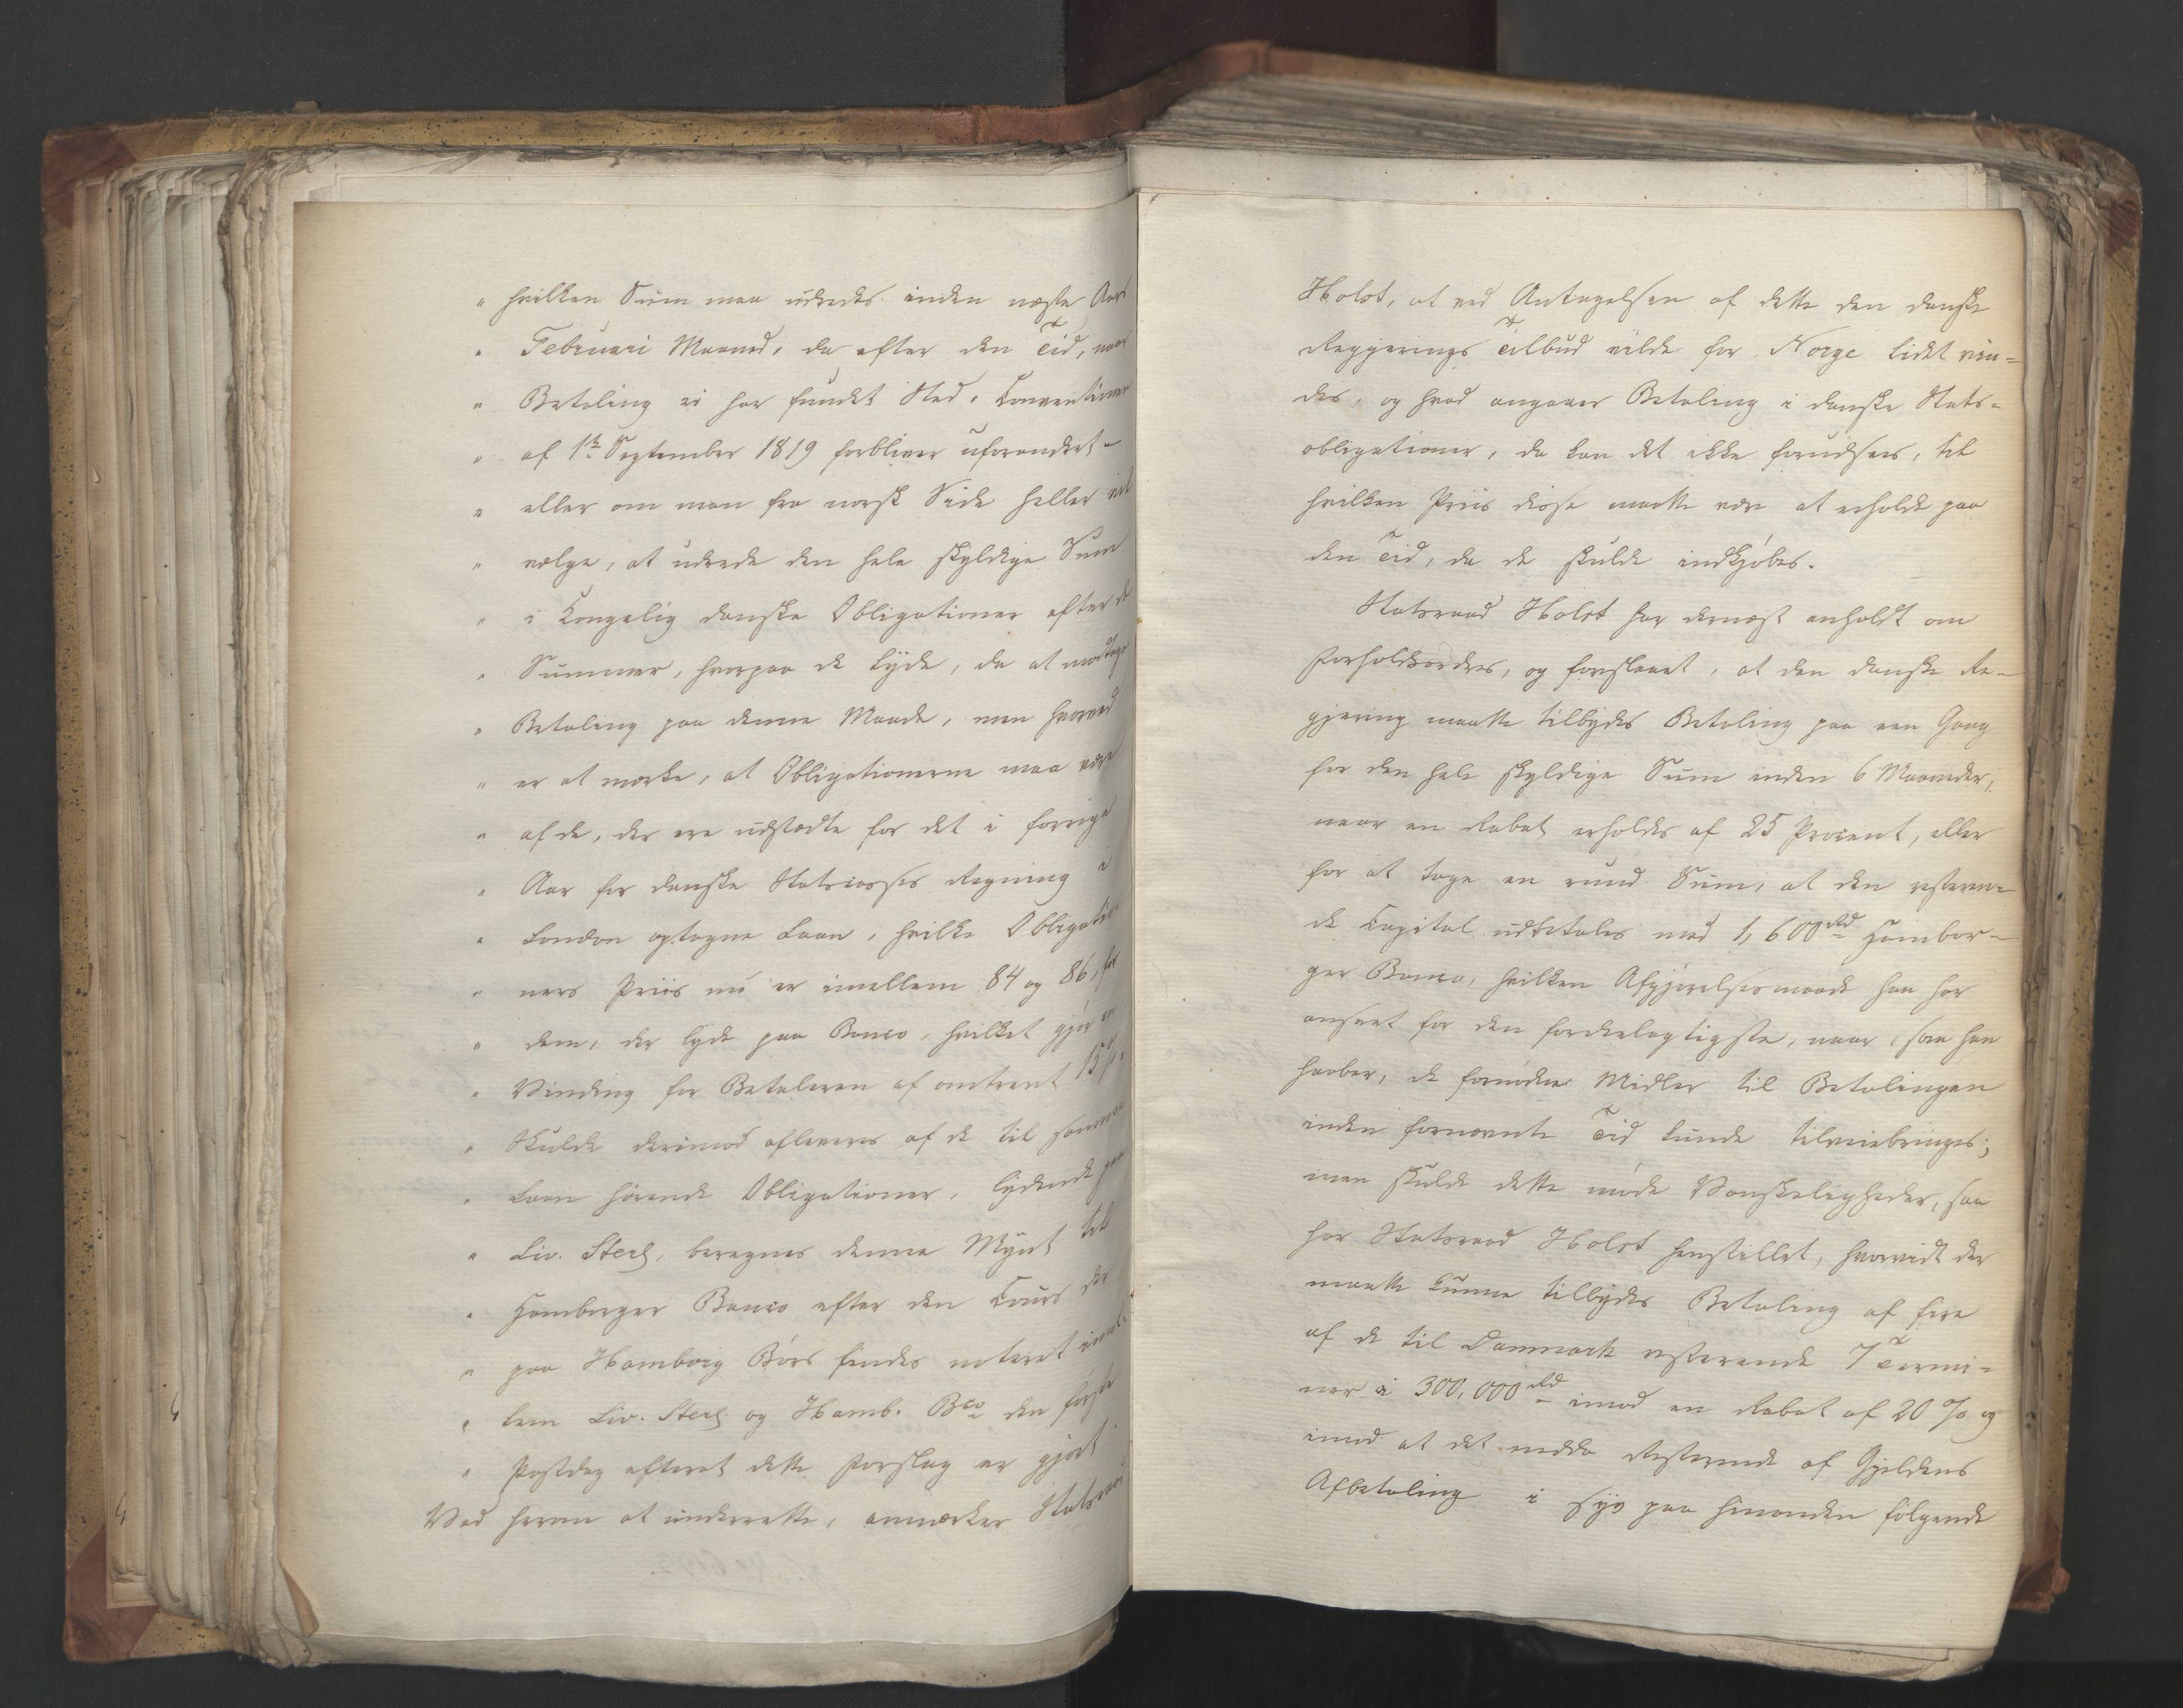 " hvilken Sum maa udredes inden næste Aars
" Februari Maaned, da efter den Tid, naar
" Betaling ei har fundet Sted, Conventionen
" af 1ste September 1819 forbliver uforandret -
" eller om man fra norsk Side heller vil
" vælge, at udrede den hele skyldige Sum
" i Kongelig danske Obligationer efter de
" Summer, hvorpaa de lyde, da at modtage
" Betaling paa denne Maade, men hvorved
" er at mærke, at Obligationerne maa være
" af de, der ere udstædte for det i forrige
" Aar for danske Statscasses Regning i
" London optagne Laan, hvilke Obligatio-
" ners Priis nu er imellem 84 og 86, for
" dem, der lyde paa Banco, hvilket gjør en
" Vinding for Betaleren af omtrent 15 %.
" Skulde derimod afleveres af de til samme
" Laan hørende Obligationer, lydende paa
" Liv. Sterl, beregnes denne Mynt til
" Hamborger Banco efter den Cours der
" paa Hamborg Børs findes noteret imel-
" lem Liv. Sterl og Hamb. Bco den første
" Postdag efterat dette Forslag er gjort.
Ved herom at underrette, anmærker Statsraad
Holst, at ved Antagelsen af dette den danske
Regjerings Tilbud vilde for Norge lidet vin-
des, og hvad angaaer Betaling i danske Stats-
obligationer, da kan det ikke forudsees, til
hvilken Priis disse maatte være at erholde paa
den Tid, da de skulde indkjøbes.
Statsraad Holst har dernæst anholdt om
Forholdsordres, og foreslaaet, at den danske Re-
gjering maatte tilbydes Betaling paa een Gang
for den hele skyldige Sum inden 6 Maaneder,
naar en Rabat erholdes af 25 Procent, eller
for at tage en rund Sum, at den resteren-
de Capital udbetales med 1,600 Rd Hambor-
ger Banco, hvilken Afgjørelsesmaade han har
anseet for den fordeelagtigste, naar, som han
haaber, de fornødne Midler til Betalingen
inden fornævnte Tid kunde tilveiebringes;
men skulde dette møde Vanskeligheder, saa
har Statsraad Holst henstillet, hvorvidt der
maatte kunne tilbydes Betaling af fire
af de til Danmark resterende 7 Termi-
ner à 300,000 Rd imod en Rabat af 20 % og
imod at det endda Resterende af Gjeldens
Afbetaling i syv paa hinanden følgende